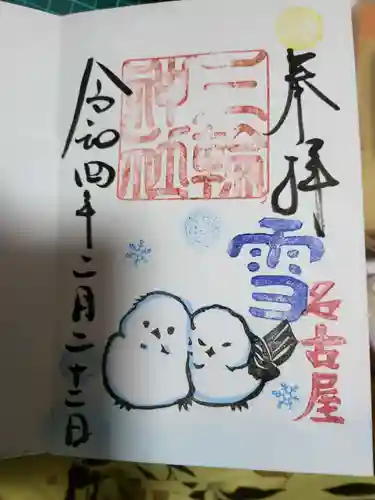 奉拝
雪
名古屋
三輪
神社
令和四年二月二十二日